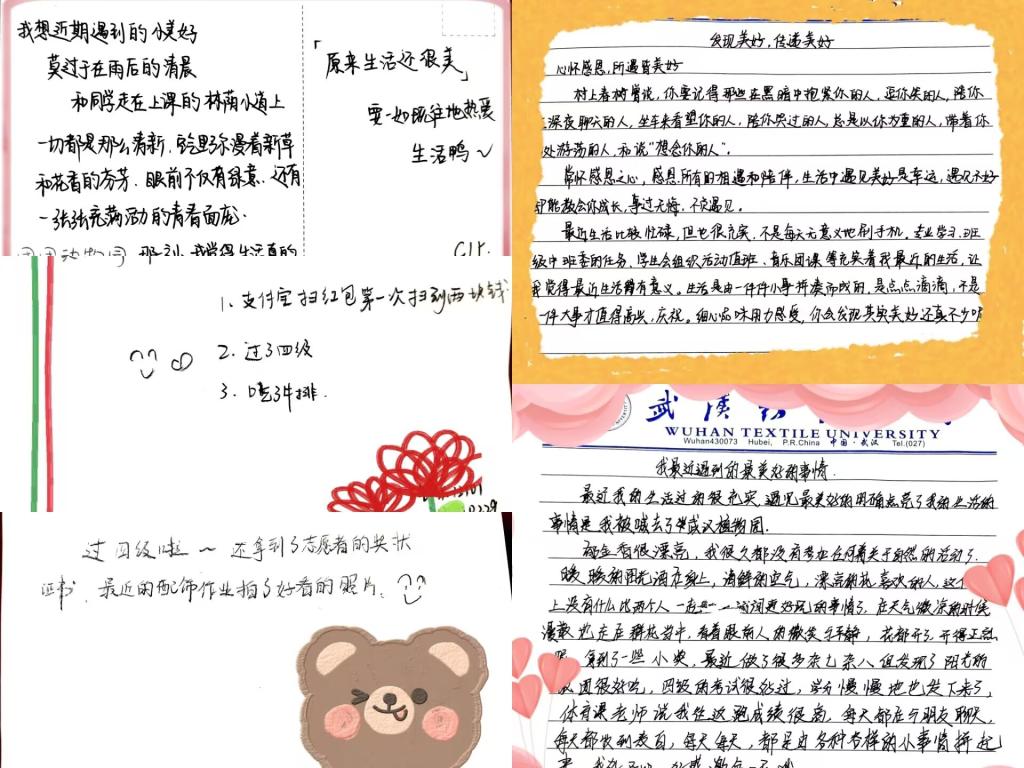 我想近期遇到的小美好
莫过于在雨后的清晨
和同学走在上课的林荫小道上
一切都是那么清新,空气里弥漫着新草
和花香的芬芳,眼前不仅有绿意,还有
一张张充满活力的青春面庞.
那刻,我觉得生活真的
「原来生活还很美」
要一如既往地热爱
生活鸭~
1. 支付宝扫红包第一次扫到两块钱
2. 过了四级
3. 吃了牛排.
过四级啦~还拿到了志愿者的奖状
证书.最近的配饰作业拍了好看的照片.
发现美好,传递美好
心怀感恩,所遇皆美好
村上春树曾说,你要记得那些在黑暗中抱紧你的人,逗你笑的人,陪你
深夜聊天的人,坐车来看望你的人,陪你哭过的人,总是以你为重的人,带着你
处游荡的人,和说“想念你的人”.
常怀感恩之心,感恩所有的相遇和陪伴,生活中遇见美好是幸运,遇见不好
即能教会你成长,喜过无悔,不负遇见.
最近生活比较忙碌,但也很充实,不是每天无意义地刷手机,专业学习、班
级中班委的任务、学生会组织活动值班、音乐团课等充实着我最近的生活,让
我觉得最近生活稍有意义。生活是由一件件小事拼凑而成的,是点点滴滴,不是
一件大事才值得高兴,庆祝。细心品味用力感受,你会发现其实美好还真不少呀
WUHAN TEXTILE UNIVERSITY
Wuhan430073 Hubei, P.R.China 中国·武汉 Tel.(027)
我最近遇到的最美好的事情.
最近我的生活过的很充实,遇见最美好的用确点亮了我的生活的
事情是我被喊去了武汉植物园.
很漂亮,我很久都没有参加任何有关于自然的活动了.
暖暖的阳光洒在身上,清鲜的空气,漂亮的花,喜欢的人,这个
上没有什么比两个人一起 更好玩的事情了.在天气微凉的时候
漫散也走在群花当中,看着眼前人的微笑 平静,花都开了,开得正热
拿到了一些小奖,最近做了很多杂七杂八但发现了阳光的
很好吃,四级的考试很好过,学分慢慢地也发下来了,
体育课老师说我在这跑成绩很高,每天都在与朋友聊天,
每天都收到 ,每天每天,都是由各种各样的小事情拼起